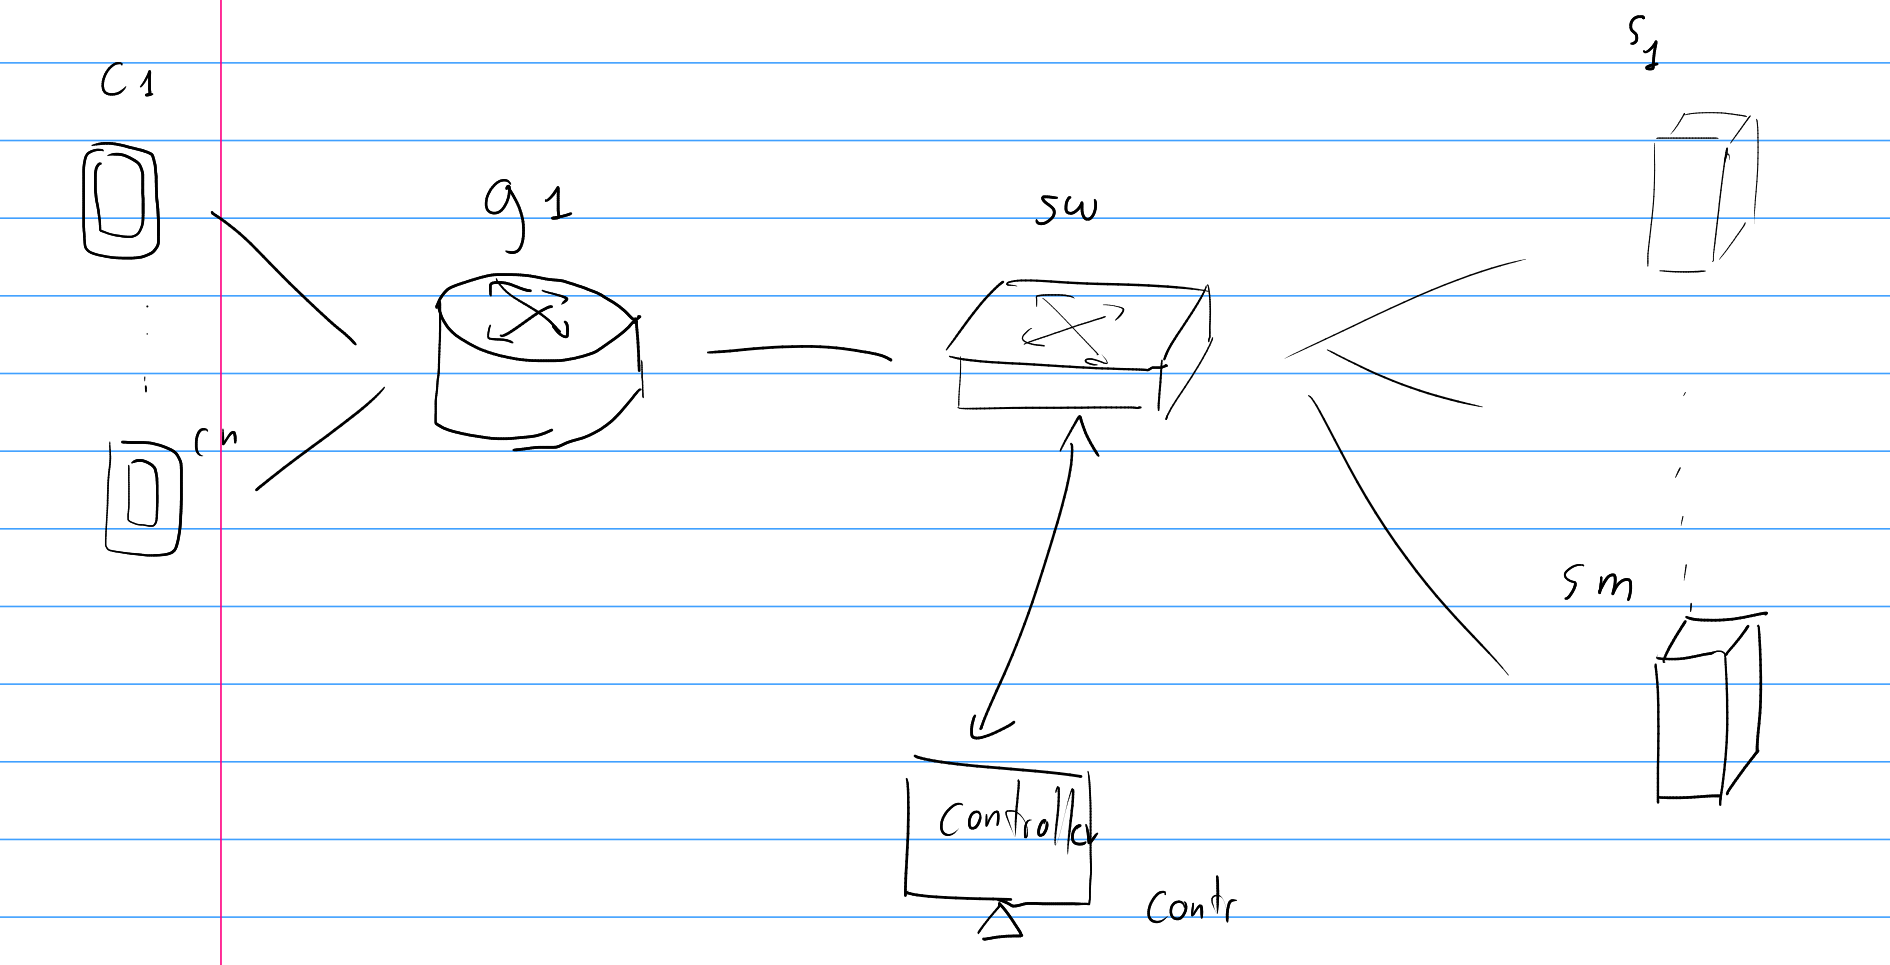 C1
g1
sw
S1
cn
sm
controller
contr